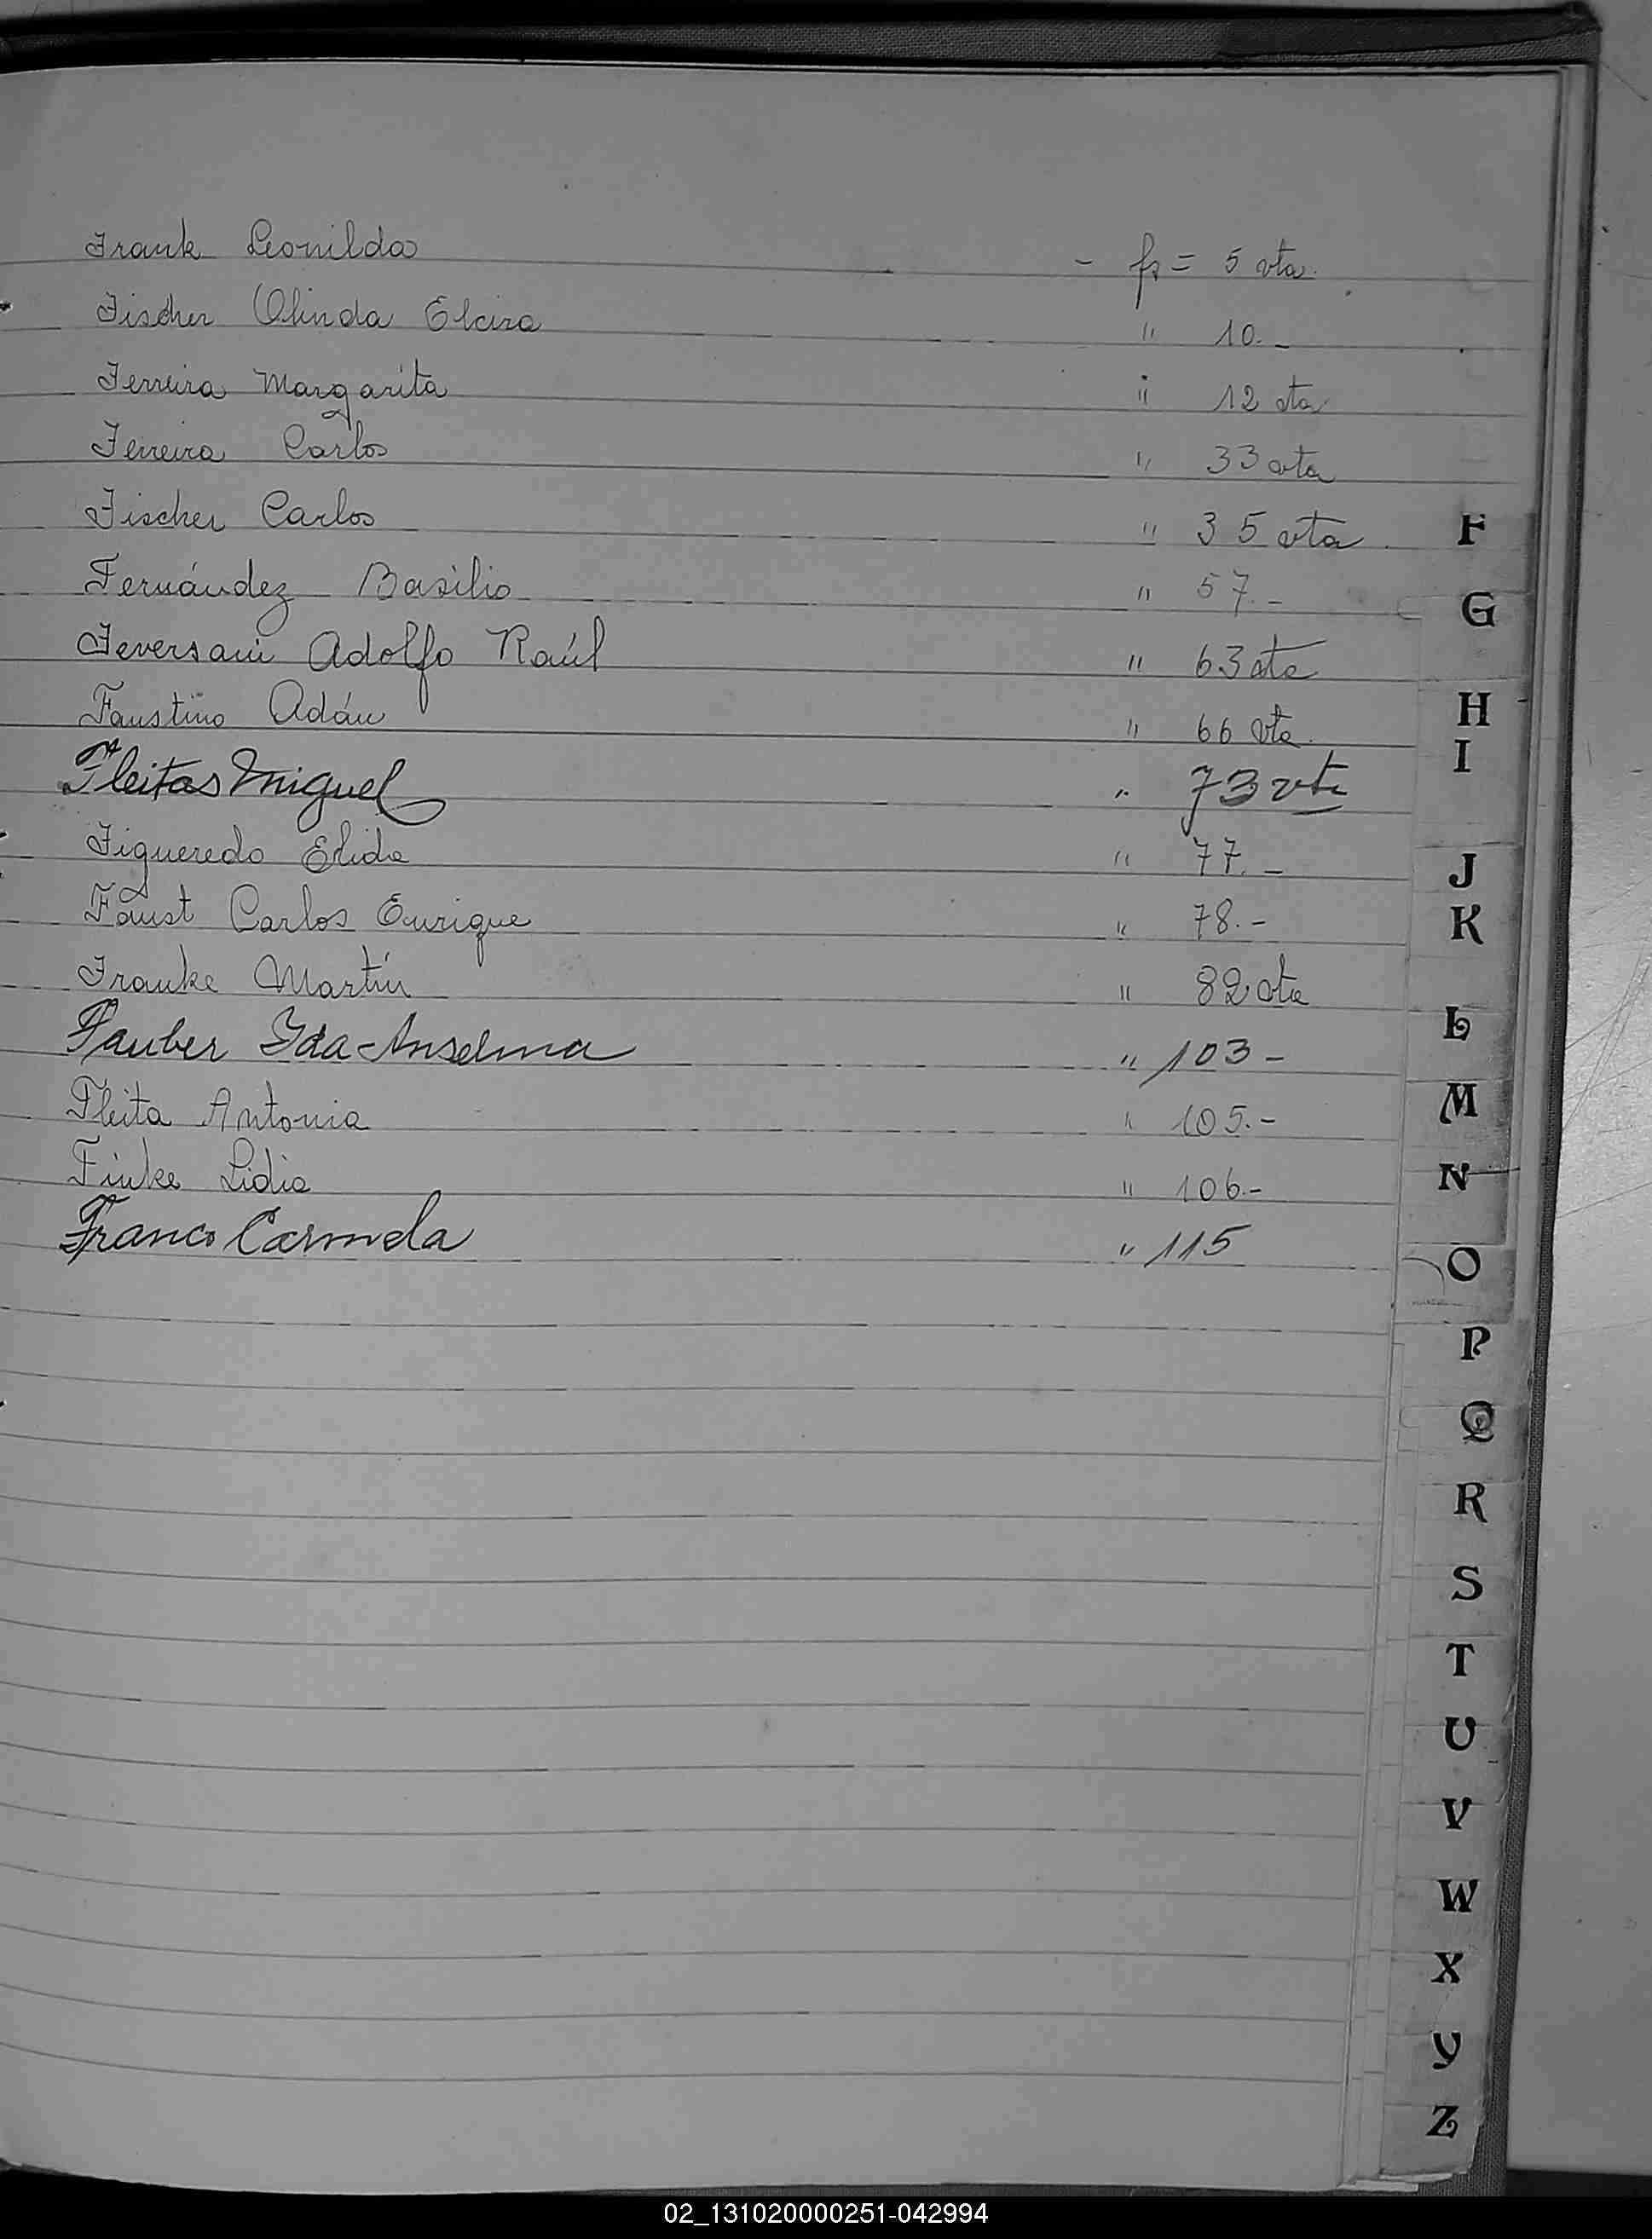 Frank Leonilda - fs = 5 vta.
Fischer Olinda Elcira " 10.-
Ferreira Margarita " 12 vta
Ferreira Carlos " 33 vta
Fischer Carlos " 35 vta.
Fernández Basilio " 57.-
Feversani Adolfo Raúl " 63 vta
Faustino Adán " 66 vta.
Fleitas Miguel " 73 vta
Figueredo Elida " 77.-
Faust Carlos Enrique " 78.-
Franke Martín " 82 vta
Fauber Ida Anselma " 103-
Fleita Antonia " 105.-
Finke Lidia " 106.-
Franco Carmela " 115
F
G
H
I
J
K
L
M
N
O
P
Q
R
S
T
U
V
W
X
Y
Z
02_131020000251-042994